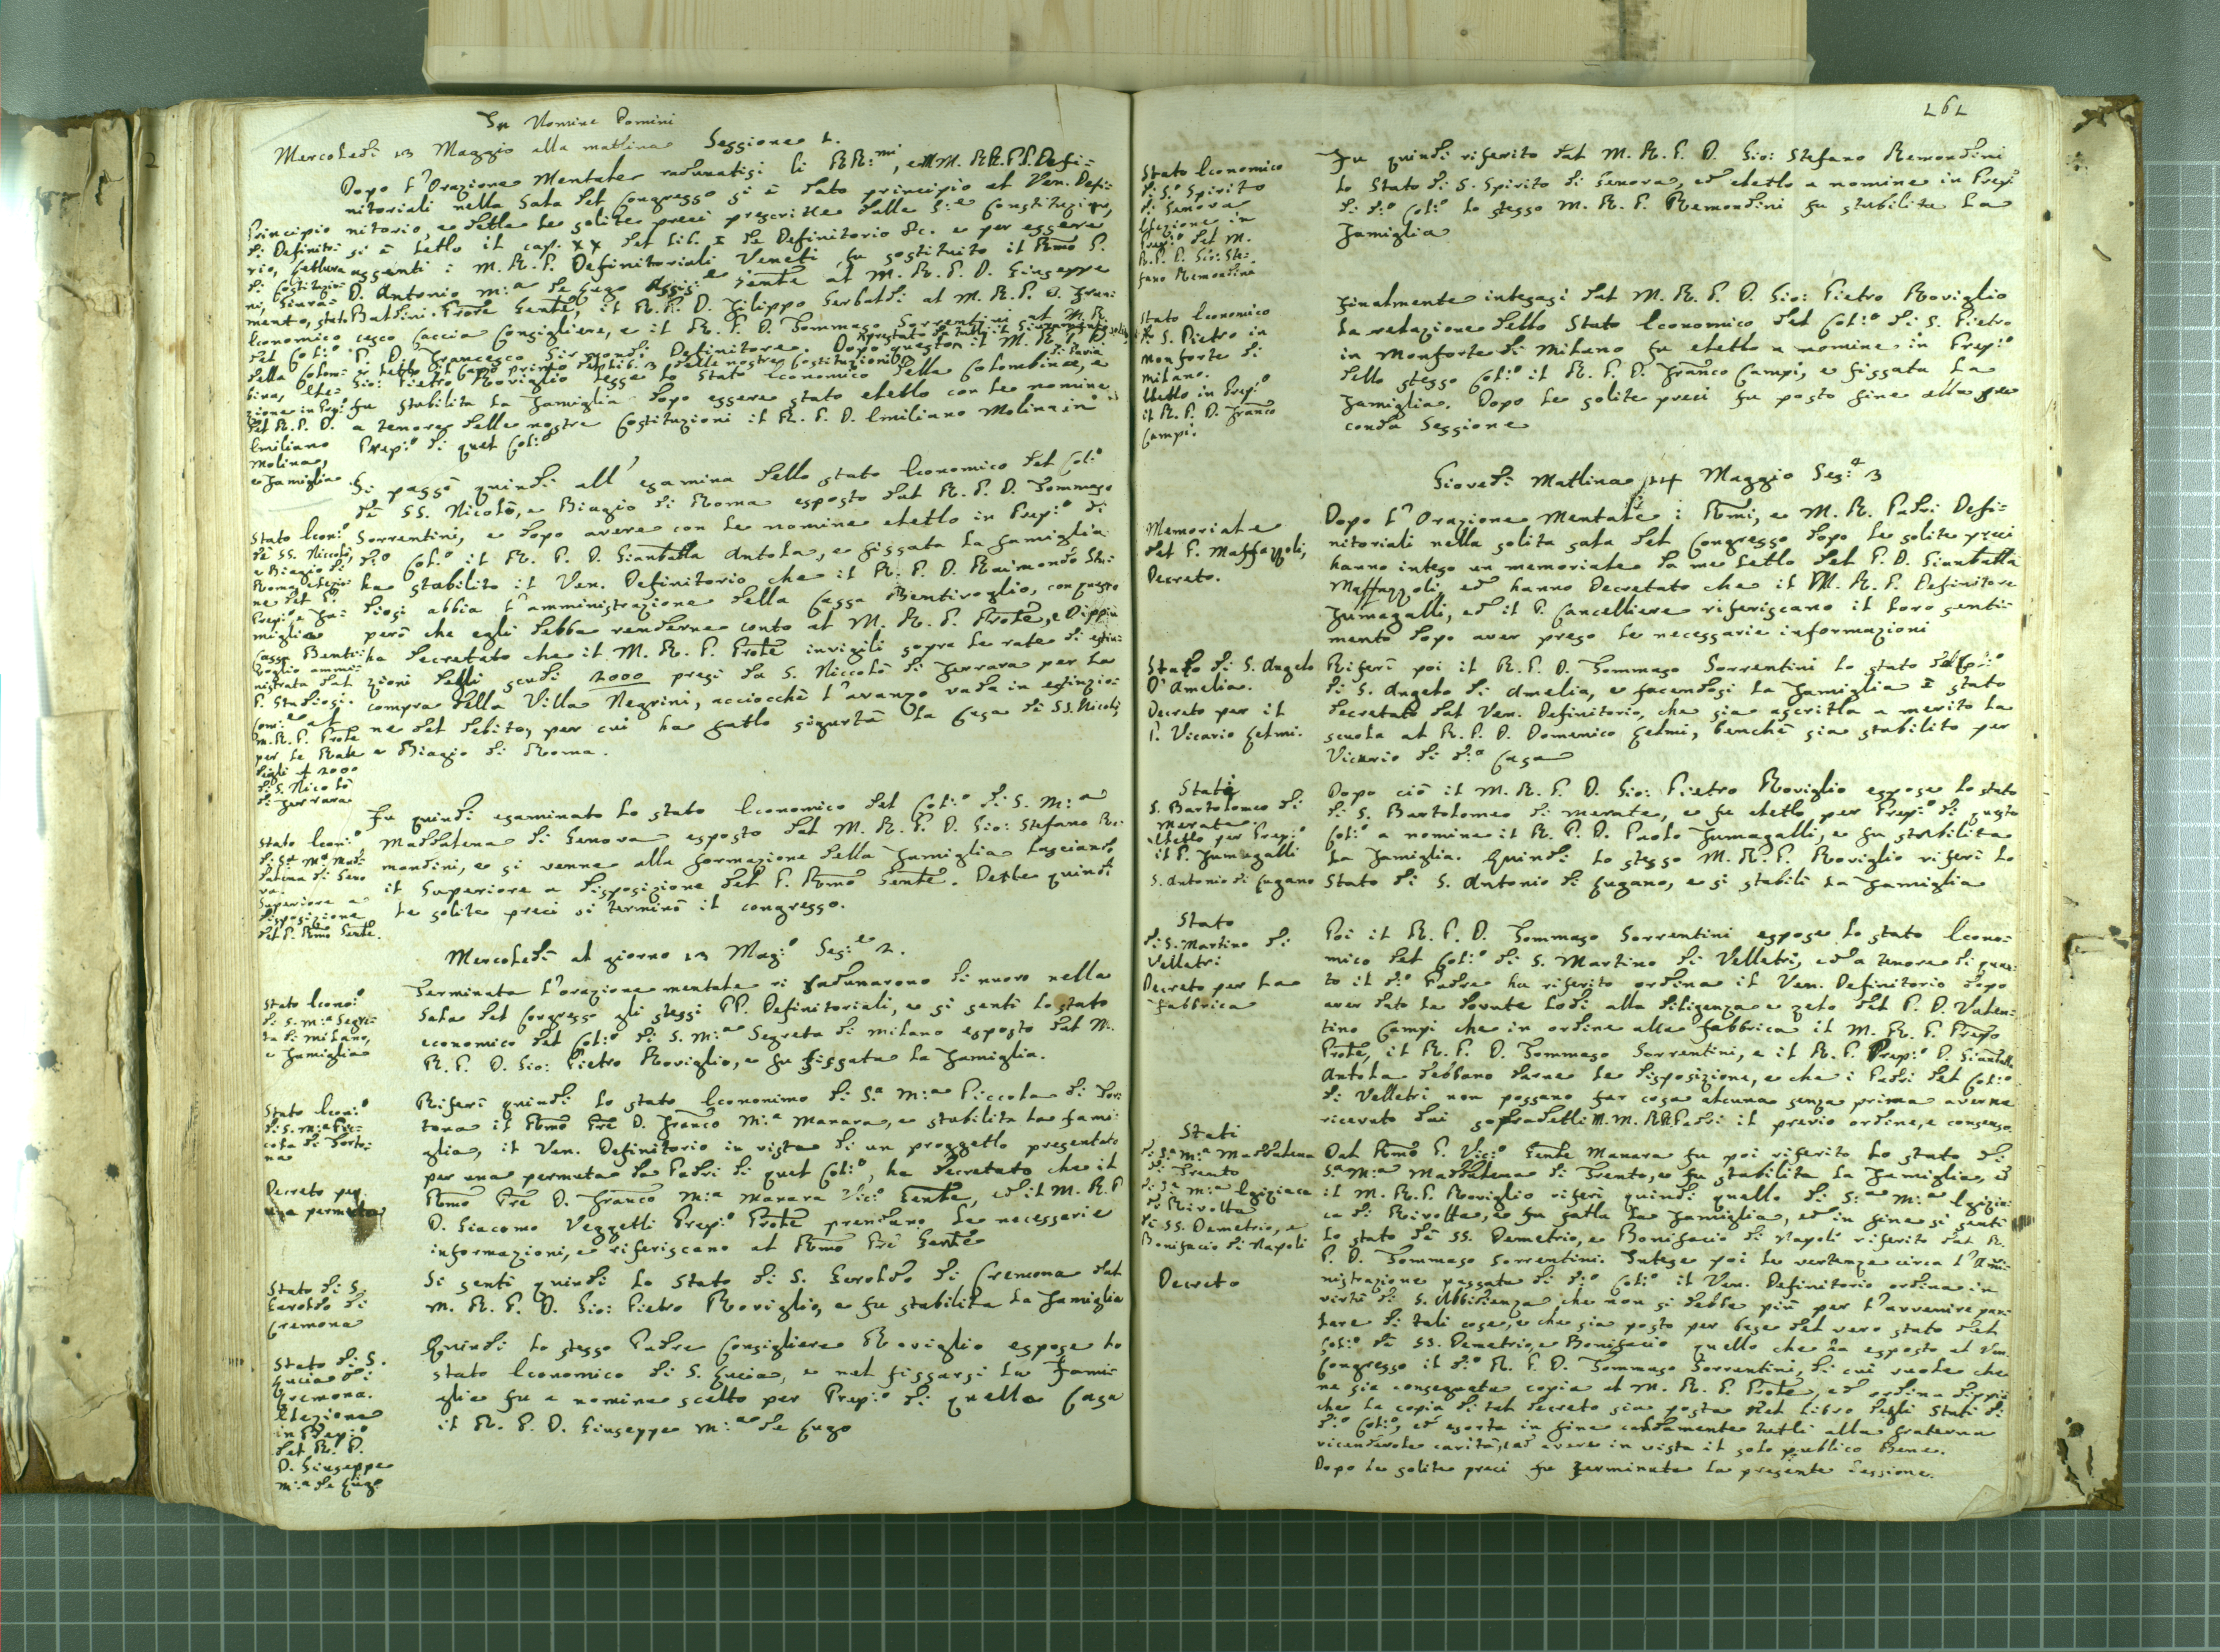 In Nomine Domini
Mercoledì 13 Maggio alla mattina Sessione 1.
Dopo l'Orazione Mentale radunatisi li RR:mi, e MM. RR. PP. Defi=
nitoriali nella Sala del Congresso si è dato principio al Ven. Defi=
nitorio, e dette le solite preci prescritte dalle S:e Constituzioni,
si è letto il cap. XX del lib. I de Definitorio &c. e per essere
assenti i M. R. P. Definitoriali Veneti fu sostituito il Rmo P.
D. Antonio M:a de Lugo Assis:e Gente al M. R. P. D. Giuseppe
Baldini Prote Gente, il R. P. D. Filippo Gerbaldi al M. R. P. D. Fran=
cesco Caccia Consigliere, e il R. P. D. Tommaso Sorrentini al M. R.
P. D. Francesco Sirmondi Definitore. Dopo questo il M. R. P. D.
Gio: Pietro Roviglio lesse lo Stato Economico della Colombina di Pavia, e
fu stabilita la Famiglia dopo essere stato eletto con le nomine
a tenore delle nostre Costituzioni il R. P. D. Emiliano Molina in
Prep:o di quel Col:o
Principio
di Definito=
rio, Lettura
di Costituzio=
ni, Giura=
mento, Stato
Economico
del Col:o
della Colom=
bina, Ele=
zione in Prep:o
del R. P. D.
Emiliano
Molina,
e Famiglia.
Si passò quindi all'esamina dello stato Economico del Col:o
de SS. Nicolò, e Biagio di Roma esposto dal R. P. D. Tommaso
Sorrentini, e dopo avere con le nomine eletto in Prep:o di
d:o Col:o il R. P. D. Gianbatta Antola, e fissata la famiglia
ha stabilito il Ven. Definitorio che il R. P. D. Raimondo Stu=
diosi abbia l'amministrazione della Cassa Bentivoglio, con questo
però che egli debba renderne conto al M. R. P. Prote, e Dippiù
ha decretato che il M. R. P. Prote invigili sopra le rate di estin=
zioni delli scudi 2000 presi da S. Niccolò di Ferrara per la
compra della Villa Negrini, acciocchè l'avanzo vada in estinzio=
ne del debito, per cui ha fatto sigurtà la Casa di SS. Nicolò,
e Biagio di Roma.
Stato Econ:o
de SS. Niccolò,
e Biagio di
Roma, elezio=
ne del P.
Prep:o e Fa=
miglia
Cassa Benti=
voglio ammi=
nistrata dal
P. Studiosi.
Com:e al
M. R. P. Prote
per le Rate
degli 2000
di S. Nicolò
di Ferrara
Fu quindi esaminato lo stato Economico del Col:o di S. M:a
Maddalena di Genova esposto dal M. R. P. D. Gio: Stefano Re=
mondini, e si venne alla formazione della Famiglia lasciando
il Superiore a disposizione del P. Rmo Gente. Dette quindi
le solite preci si terminò il congresso.
Stato Econ:o
di S.a M:a Mad=
dalena di Geno
va.
Superiore a
disposizione
del P. Rmo Gente.
Mercoledì al giorno 13 Mag:o Ses:e 2.
Terminata l'orazione mentale si radunarono di nuovo nella
Sala del Congresso gli stessi PP. Definitoriali, e si sentì lo stato
economico del Col:o di S. M:a Segreta di Milano esposto dal M.
R. P. D. Gio: Pietro Roviglio, e fu fissata la Famiglia.
Stato Econo:o
di S. M:a Segre=
ta di Milano,
e Famiglia
Riferì quindi lo stato Economimo di S.a M:a Piccola di Tor=
tona il Rmo Pre D. Franco M:a Manara, e stabilita la fami=
glia, il Ven. Definitorio in vista di un proggetto presentato
per una permuta da Padri di quel Col:o, ha decretato che il
Rmo Pre D. Franco M:a Manara Vic:o Gente, ed il M. R. P.
D. Giacomo Vezzetti Prep:o Prote prendano le necessarie
informazioni, e riferiscano al Rmo Pre Gente
Stato Econ:o
di S. M:a Pic=
cola di Torto=
na
Decreto per
una permuta
Si sentì quindi lo Stato di S. Geroldo di Cremona dal
M. R. P. D. Gio: Pietro Roviglio, e fu stabilita la Famiglia
Stato di S.
Geroldo di
Cremona
Quindi lo stesso Padre Consigliere Roviglio espose lo
stato Economico di S. Lucia, e nel fissarsi la Fami=
glia fu a nomine scelto per Prep:o di quella Casa
il R. P. D. Giuseppe M:a de Lugo
Stato di S.
Lucia di
Cremona.
Elezione
in Prep:o
del R. P.
D. Giuseppe
M:a de Lugo
161
Fu quindi riferito dal M. R. P. D. Gio: Stefano Remondini
lo Stato di S. Spirito di Genova, ed eletto a nomine in Prep:o
di d:o Col:o lo stesso M. R. P. Remondini fu stabilita la
Famiglia
Stato Economico
di S.o Spirito
di Genova
Elezione in
Prep:o del M.
R. P. D. Gio: Ste=
fano Remondini
Finalmente intesasi dal M. R. P. D. Gio: Pietro Roviglio
la relazione dello Stato Economico del Col:o di S. Pietro
in Monforte di Milano fu eletto a nomine in Prep:o
dello stesso Col:o il R. P. D. Franco Campi, e fissata la
Famiglia. Dopo le solite preci fu posto fine alla se
conda Sessione
Stato Economico
di S. Pietro in
Monforte di
Milano.
Eletto in Prep:o
il R. P. D. Franco
Campi.
Giovedì Mattina 14 Maggio Ses:e 3
Dopo l'Orazione Mentale i Rmi, e M. R. Padri Defi=
nitoriali nella solita sala del Congresso dopo le solite preci
hanno inteso un memoriale da me letto del P. D. Gianbatta
Maffazzoli, ed hanno Decretato che il M. R. P. Definitore
Fumagalli, ed il P. Cancelliere riferiscano il loro senti=
mento dopo aver preso le necessarie informazioni
Memoriale
del P. Maffazzoli,
Decreto.
Riferì poi il R. P. D. Tommaso Sorrentini lo stato del Col:o
di S. Angelo di Amelia, e facendosi la Famiglia è stato
decretato dal Ven. Definitorio, che sia ascritta a merito la
scuola al R. P. D. Domenico Gelmi, benchè sia stabilito per
Vicario di d:a Casa
Stato di S. Angelo
D'Amelia.
Decreto per il
P. Vicario Gelmi.
Dopo ciò il M. R. P. D. Gio: Pietro Roviglio espose lo stato
di S. Bartolomeo di Merate, e fu eletto per Prep:o di questo
Col:o a nomine il R. P. D. Paolo Fumagalli, e fu stabilita
la Famiglia. Quindi lo stesso M. R. P. Roviglio riferì lo
Stato di S. Antonio di Lugano, e si stabilì la Famiglia
Stati
S. Bartolomeo di
Merate.
eletto per Prep:o
il P. Fumagalli
S. Antonio di Lugano
Poi il R. P. D. Tommaso Sorrentini espose lo stato Econo=
mico del Col:o di S. Martino di Velletri, ed a tenore di quan=
to il d:o Padre ha riferito ordina il Ven. Definitorio dopo
aver dato le dovute lodi alla diligenza e zelo del P. D. Valen=
tino Campi che in ordine alla fabbrica il M. R. P. Prepo
Prote, il R. P. D. Tommaso Sorrentini, e il R. P. Prep:o D. Gianbatta
Antola debbano darne le disposizione, e che i Padri del Col:o
di Velletri non possano far cosa alcuna senza prima averne
ricevuto dai sopradetti M. M. RR. Padri il previo ordine, e consenso.
Stato
di S. Martino di
Velletri
Decreto per la
fabbrica
Dal Rmo P. Vic:o Gente Manara fu poi riferito lo stato di
S.a M:a Maddalena di Trento, e fu stabilita la Famiglia, ed
il M. R. P. Roviglio riferì quindi quello di S:a M:a Egizia=
ca di Rivolta, e fu fatta la Famiglia, ed in fine si sentì
lo stato de SS. Demetrio, e Bonifacio di Napoli riferito dal R.
P. D. Tommaso Sorrentini. Intese poi le vertenze circa l'Ammi=
nistrazione passata di d:o Col:o il Ven. Definitorio ordina in
virtù di S. Ubbidienza, che non si debba più per l'avvenire par=
lare di tali cose, e che sia posto per base del vero stato del
Col:o de SS. Demetrio, e Bonifacio quello che ha esposto al Ven.
Congresso il d:o R. P. D. Tommaso Sorrentini, di cui vuole che
ne sia consegnata copia al M. R. P. Prote, ed ordina dippiù
che la copia di tal decreto sia posta nel Libro degli Stati di
d:o Col:o, ed esorta in fine caldamente tutti alla fraterna
vicendevole carità, ed avere in vista il solo publico Bene.
Dopo le solite preci fu terminata la presente sessione.
Stati
di S.a M:a Maddalena
di Trento
di S.a M:a Egiziaca
di Rivolta
di SS. Demetrio, e
Bonifacio di Napoli
Decreto